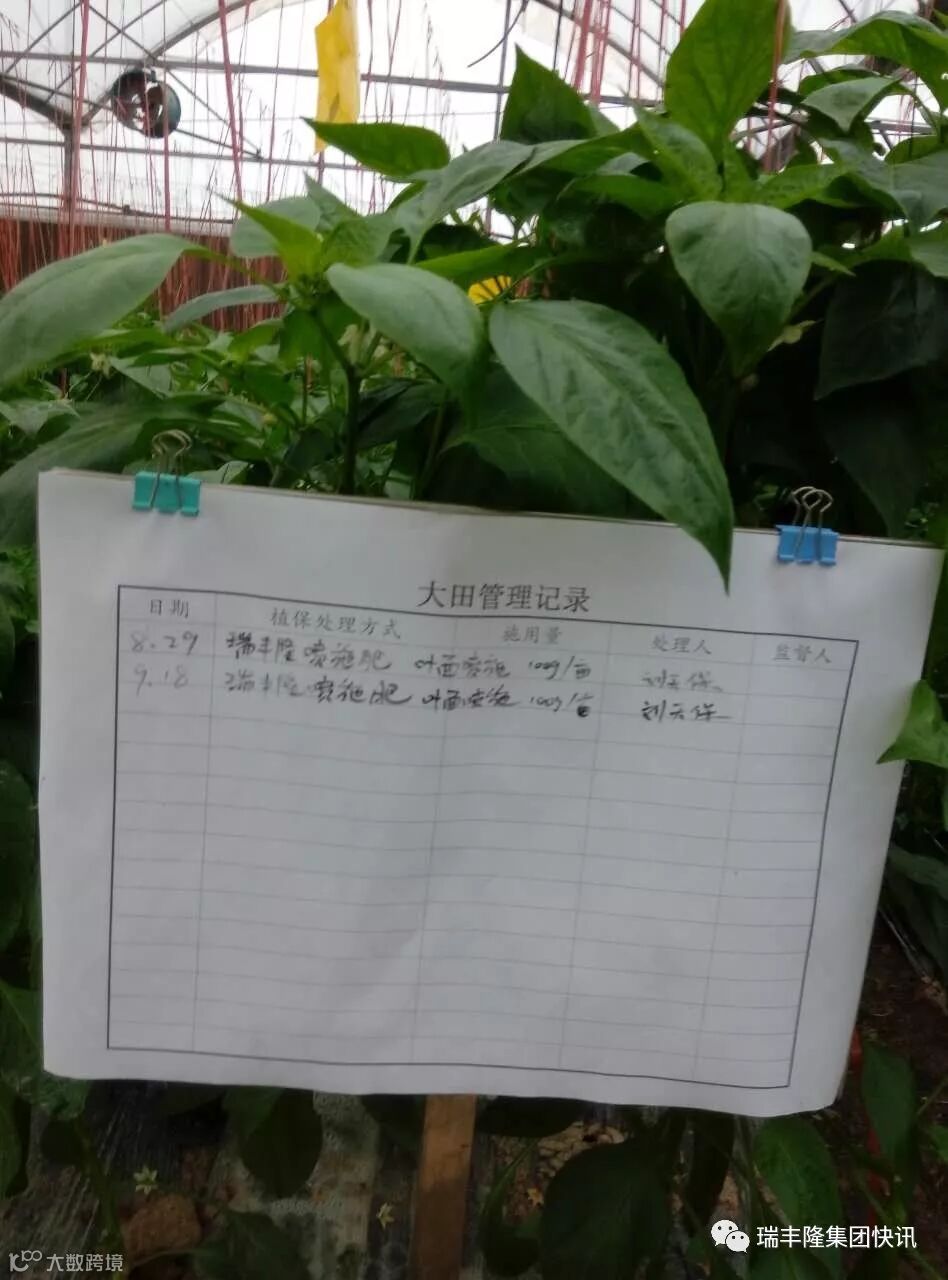 大田管理记录
日期 植保处理方式 施用量 处理人 监督人
8.29 瑞丰隆喷施肥 叶面喷施 100g/亩 刘天保
9.18 瑞丰隆喷施肥 叶面喷施 100g/亩 刘天保
瑞丰隆集团快讯
大数跨境